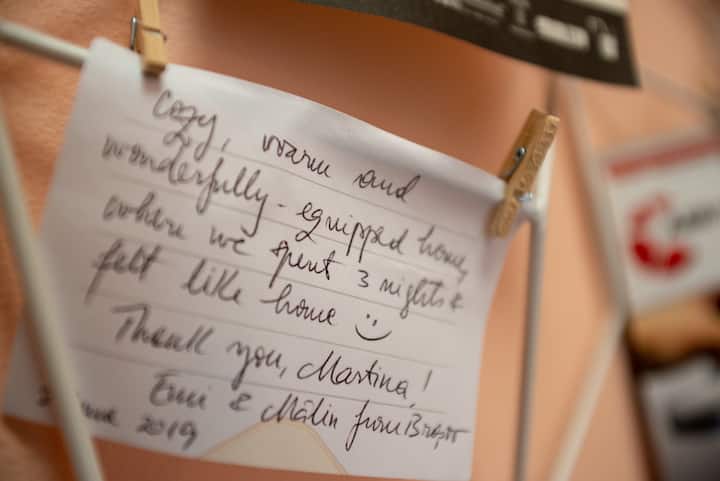 Cozy, warm and
wonderfully-equipped home,
where we spent 3 nights &
felt like home :)
Thank you, Martina!
Emi & Mălin from Brașov
June 2019